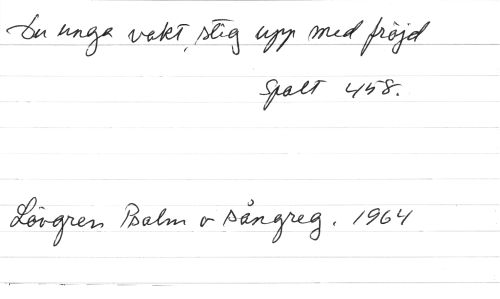 Du unga vakt, stig upp med fröjd
Spalt 458.
Lövgren Psalm o sångreg. 1964